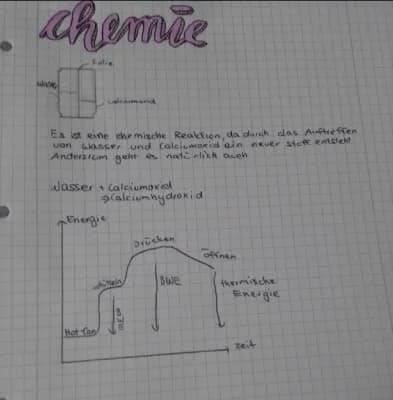 chemie
Folie
Wasser
Calciumoxid
Es ist eine chemische Reaktion, da durch das Auftreffen
von Wasser und Calciumoxid ein neuer stoff entsteht
Andersrum geht es natürlich auch
Wasser + Calciumoxid
→ Calciumhydroxid
Energie
Drücken
öffnen
schütteln
BWE
BWE
thermische
Energie
Hot Tan
zeit